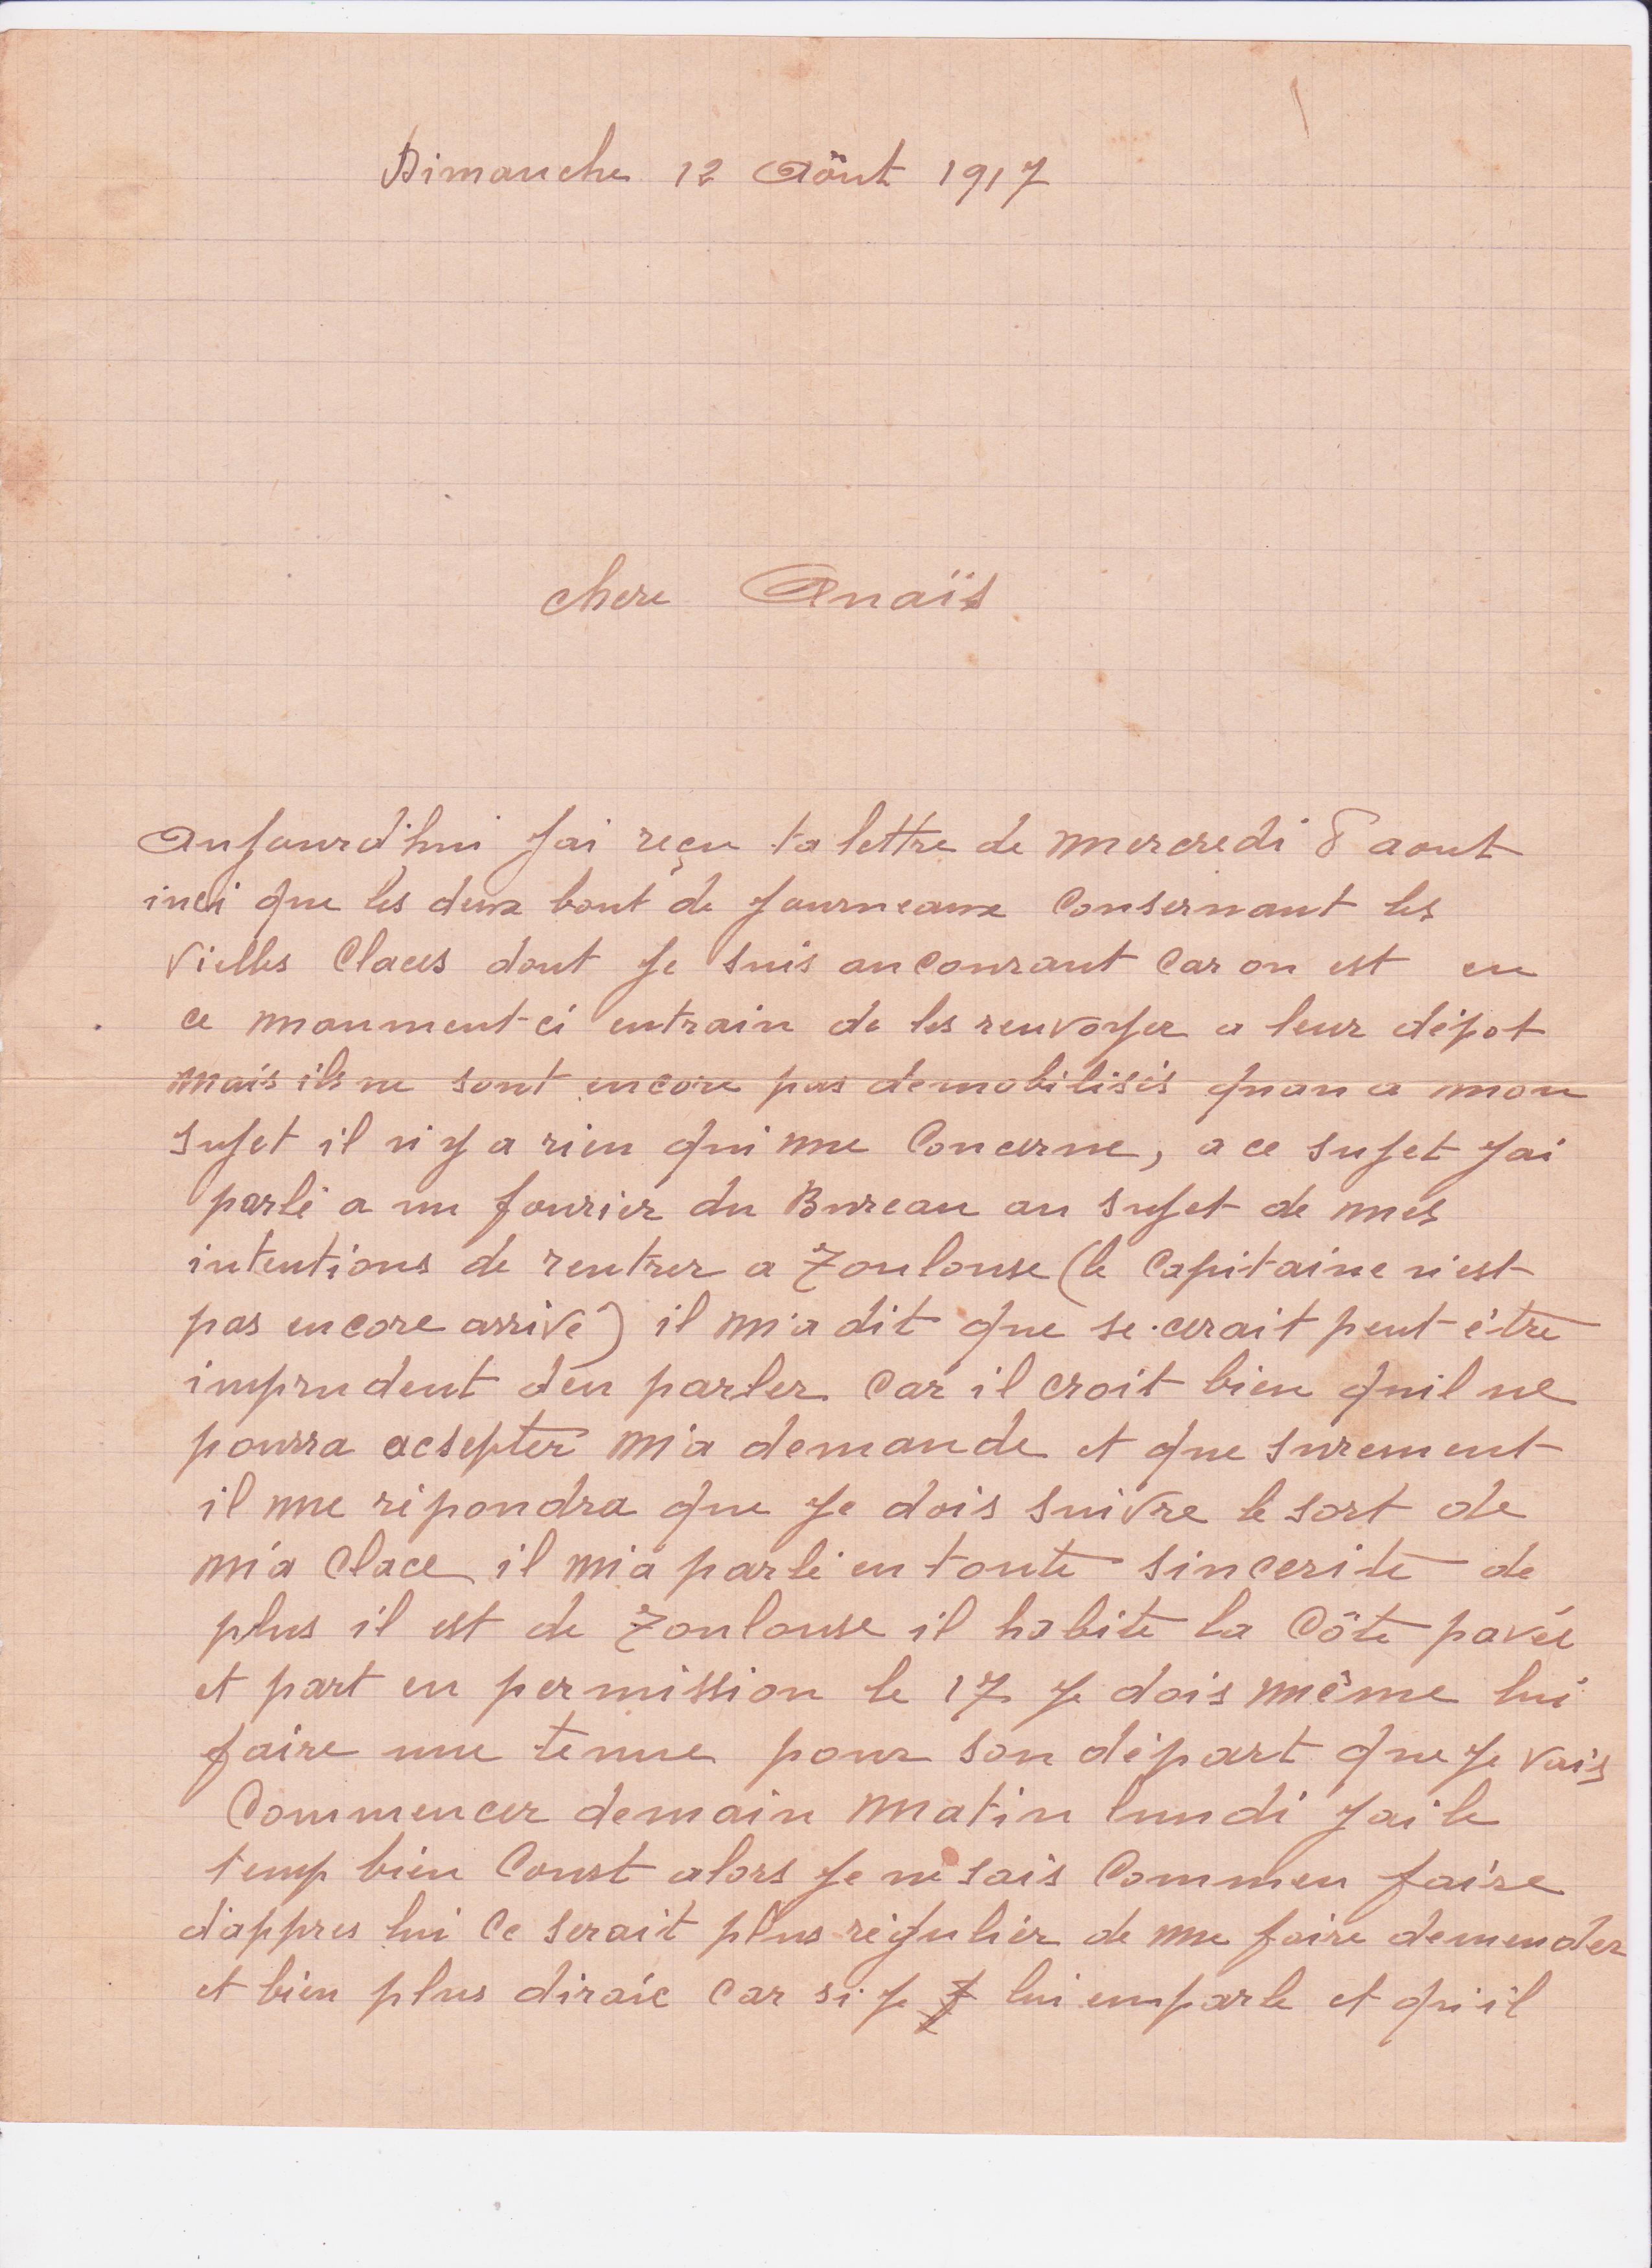 Dimanche 12 Aôut 1917
chere Anaïs
Aujourd'hui J'ai reçu ta lettre de mercredi 8 aout
inci que les deux bout de Journeaux Consernant les
vielles Claces dont Je suis aucourant Car on est en
ce monment-ci entrain de les renvoyer a leur dépot
mais ils ne sont encore pas demobilisés quan a mon
sujet il n'y a rien qui me Concerne, a ce sujet J'ai
parlé a un fourier du Bureau au sujet de mes
intentions de rentrer a Toulouse (le Capitaine n'est
pas encore arrivé) il m'a dit que se cerait peut-être
imprudent d'en parler Car il croit bien qu'il ne
pourra acsepter m'a demande et que surement
il me répondra que Je dois suivre le sort de
m'a Clace il m'a parlé en toute sincerite de
plus il est de Toulouse il habite la Côte pavée
et part en permission le 17 Je dois même lui
faire une tenue pour son départ que Je vais
Commencer demain matin lundi J'ai le
temp bien Court alors Je ne sais Commen faire
d'appres lui Ce serait plus régulier de me faire demender
et bien plus diraic Car si Je lui emparle et qu'il